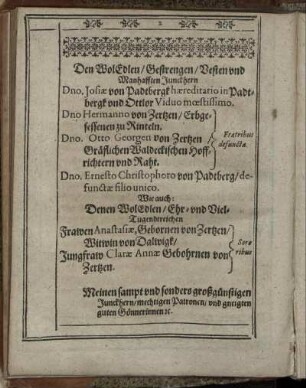 2
Den WolEdlen/ Gestrengen/ Vesten vnd
Manhafften Junckhern
Dno. Josiæ von Padtbergk hæreditario in Padt-
bergk vnd Ottlor Viduo mœstissimo.
Dno Hermanno von Zertzen/ Erbge-
sessenen zu Rinteln.
Dno. Otto Georgen von Zertzen
Gräflichen Waldeckischen Hoff-
richtern vnd Raht.
Fratribus
defunctæ.
Dno. Ernesto Christophoro von Padtberg/ de-
functæ filio unico.
Wie auch:
Denen WolEdlen/ Ehr- vnd Viel-
Tugendreichen
Frawen Anastasiæ, Gebornen von Zertzen/
Witwin von Dalwigk/
Jungfraw Claræ Annæ Gebohrnen von
Zertzen.
Soro-
ribus
Meinen sampt vnd sonders großgünstigen
Junckhern/ mechtigen Patronen/ vnd gneigten
guten Gönnerinnen ꝛc.